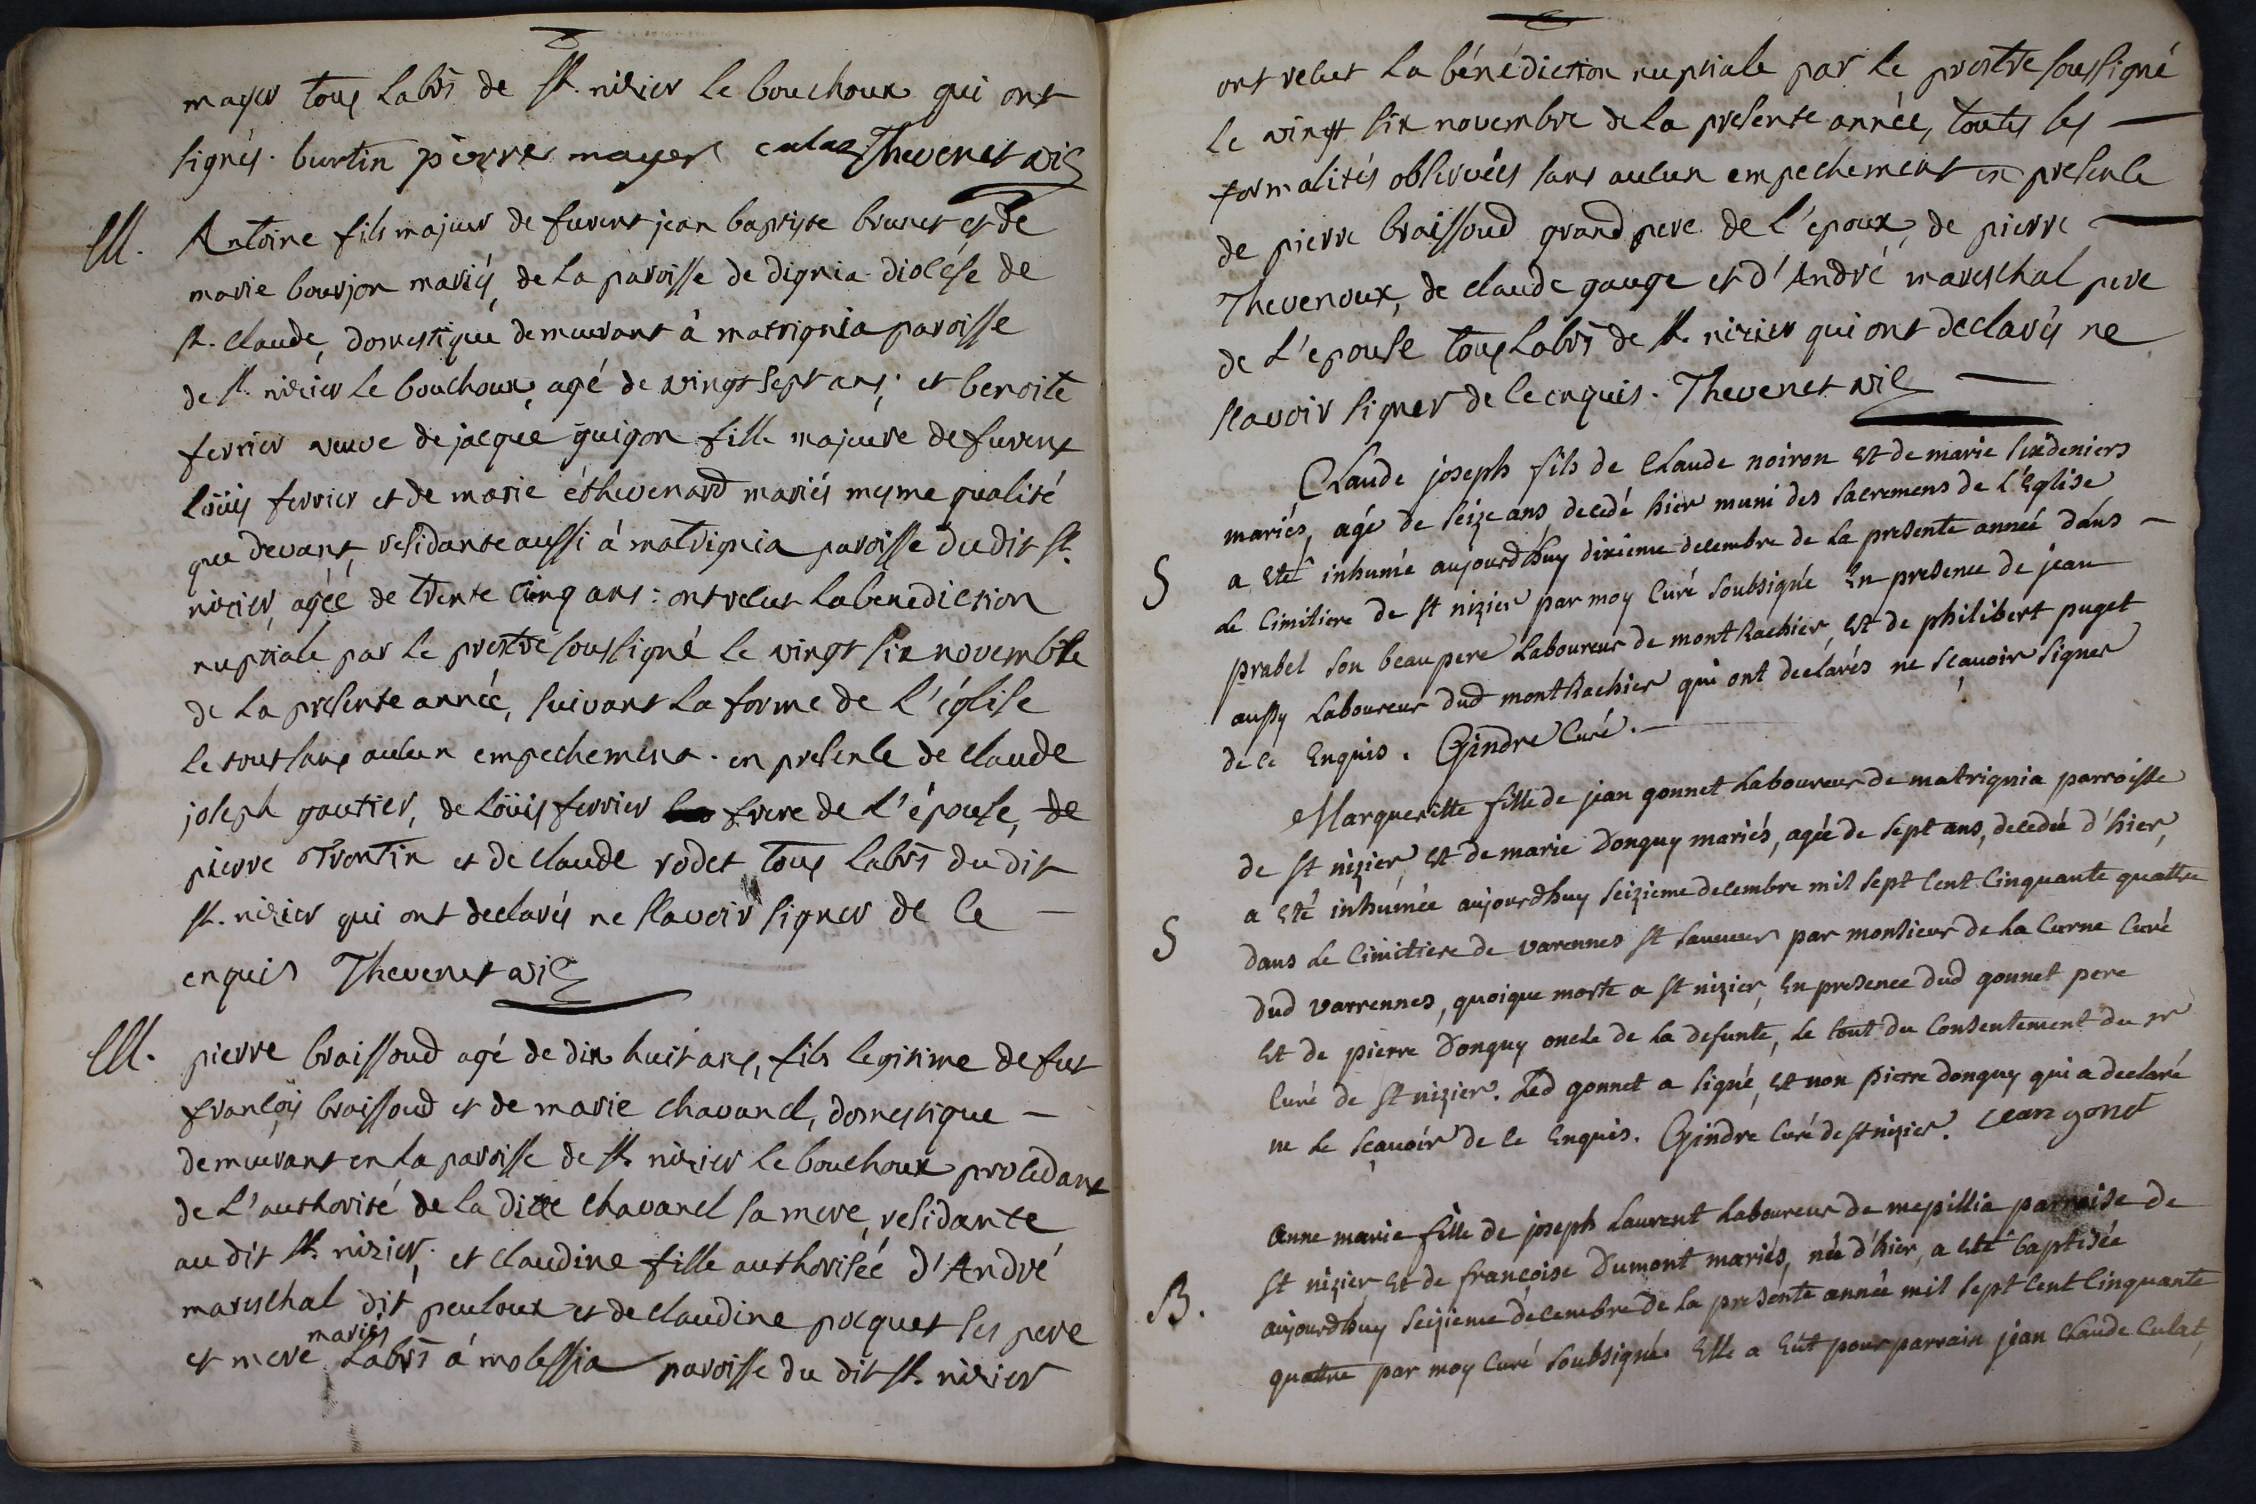 mayer tous labrs de st. nizier le bouchoux qui ont
signés. burtin pierre mayer culas Thevenet vic
M. Antoine fils majeur de furent jean baptiste brunet et de
marie bourjon mariés, de la paroisse de dignia diocése de
st. claude, domestique demeurant à matrignia paroisse
de st. nizier le bouchoux, agé de vingt sept ans; et benoite
ferrier veuve de jacque guigon fille majeure de furent
loüis ferrier et de marie éthevenard mariés mesme qualité
que devant, residante aussi à matrignia paroisse du dit st.
nizier, agéé de trente cinq ans: ont recut la benediction
nuptiale par le prestre soussigné le vingt six novembre
de la presente année, suivant la forme de l'église
le tout sans aucun empechement. en presence de claude
joseph gautier, de loüis ferrier frere de l'épouse, de
pierre Trontin et de claude rodet tous labrs du dit
st. nizier qui ont declarés ne scavoir signer de ce —
enquis Thevenet vic
M. pierre braissoud agé de dix huit ans, fils legitime de fut
françois braissoud et de marie chavanel, domestique —
demeurant en la paroisse de st. nizier le bouchoux procedant
de l'authorité de la ditte chavanel sa mere, residante
au dit st. nizier; et claudine fille authoriséé d'André
mareschal dit peuloux et de claudine pocquet ses pere
et mere mariés labrs à molessia paroisse du dit st. nizier
ont recut la bénédiction nuptiale par le prestre soussigné
le vingt six novembre de la presente année, toutes les —
formalités observées sans aucun empechement en presence
de pierre braissoud grand pere de l'epoux, de pierre —
Thevenoux, de claude gauge et d'André mareschal pere
de l'epouse tous labrs de st. nizier qui ont declarés ne
scavoir signer de ce enquis. Thevenet vic —
Claude joseph fils de Claude noiron Et de marie sixdeniers
mariés, agé de seize ans, decedé hier muni des sacremens de l'Eglise
S a Eté inhumé aujourdhuy dixieme decembre de la presente anneé dans —
le Cimitiere de st nizier par moy Curé soubsigné En presence de jean
prabel son beaupere Laboureur de montRachier, Et de philibert puget
aussy Laboureur dud montRachier qui ont declarés ne sçauoir signer
de ce Enquis. Gindre Curé. —
Margueritte fille de jean gonnet Laboureur de matrignia parroisse
de st nizier, Et de marie Donguy mariés, agée de sept ans, decedée d'hier,
a Eté inhumée aujourdhuy seizieme decembre mil sept Cent Cinquante quattre
S dans le Cimitiere de varennes st sauveur par monsieur de La Curne Curé
dud varrennes, quoique morte a st nizier, En presence dud gonnet pere
Et de pierre Donguy oncle de la defunte, le tout du Consentement du sr
Curé de st nizier. Led gonnet a signé, Et non pierre Donguy qui a declaré
ne le sçauoir de ce Enquis. Gindre Curé de st nizier. Jean gonet
Anne marie fille de joseph Laurent Laboureur de mepillia parroise de
st nizier, Et de françoise Dumont mariés, née d'hier, a eté baptisée
B. aujourdhuy seizieme decembre de la presente année mil sept Cent Cinquante
quattre par moy Curé soubsigné. Elle a Eüt pour parrain jean Claude Culat,